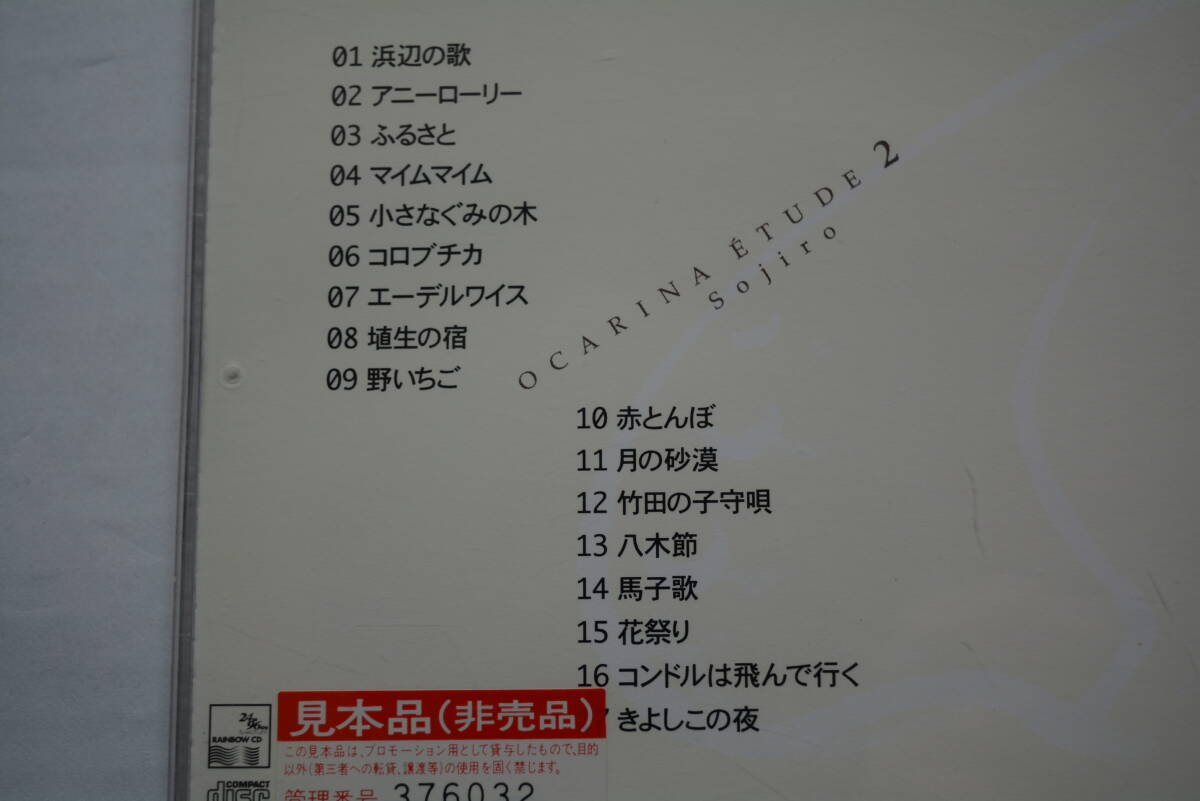 01 浜辺の歌
02 アニーローリー
03 ふるさと
04 マイムマイム
05 小さなぐみの木
06 コロブチカ
07 エーデルワイス
08 埴生の宿
09 野いちご
OCARINA ÉTUDE 2
Sojiro
10 赤とんぼ
11 月の砂漠
12 竹田の子守唄
13 八木節
14 馬子歌
15 花祭り
16 コンドルは飛んで行く
7 きよしこの夜
RAINBOW CD
見本品(非売品)
この見本品は、プロモーション用として貸与したもので、目的
以外(第三者への転貸、譲渡等)の使用を固く禁じます。
COMPACT
disc
管理番号 376032